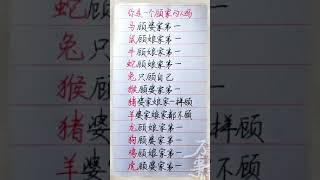 你是一个顾家的人吗
马顾婆家第一
鼠顾娘家第一
牛顾娘家第一
蛇顾娘家第一
兔只顾自己
猴顾婆家第一
猪婆家娘家一样顾
羊婆家娘家都不顾
龙顾娘家第一
狗顾婆家第一
鸡顾娘家第一
虎顾婆家第一
蛇
兔
猴
猪婆
羊婆
样顾
不顾